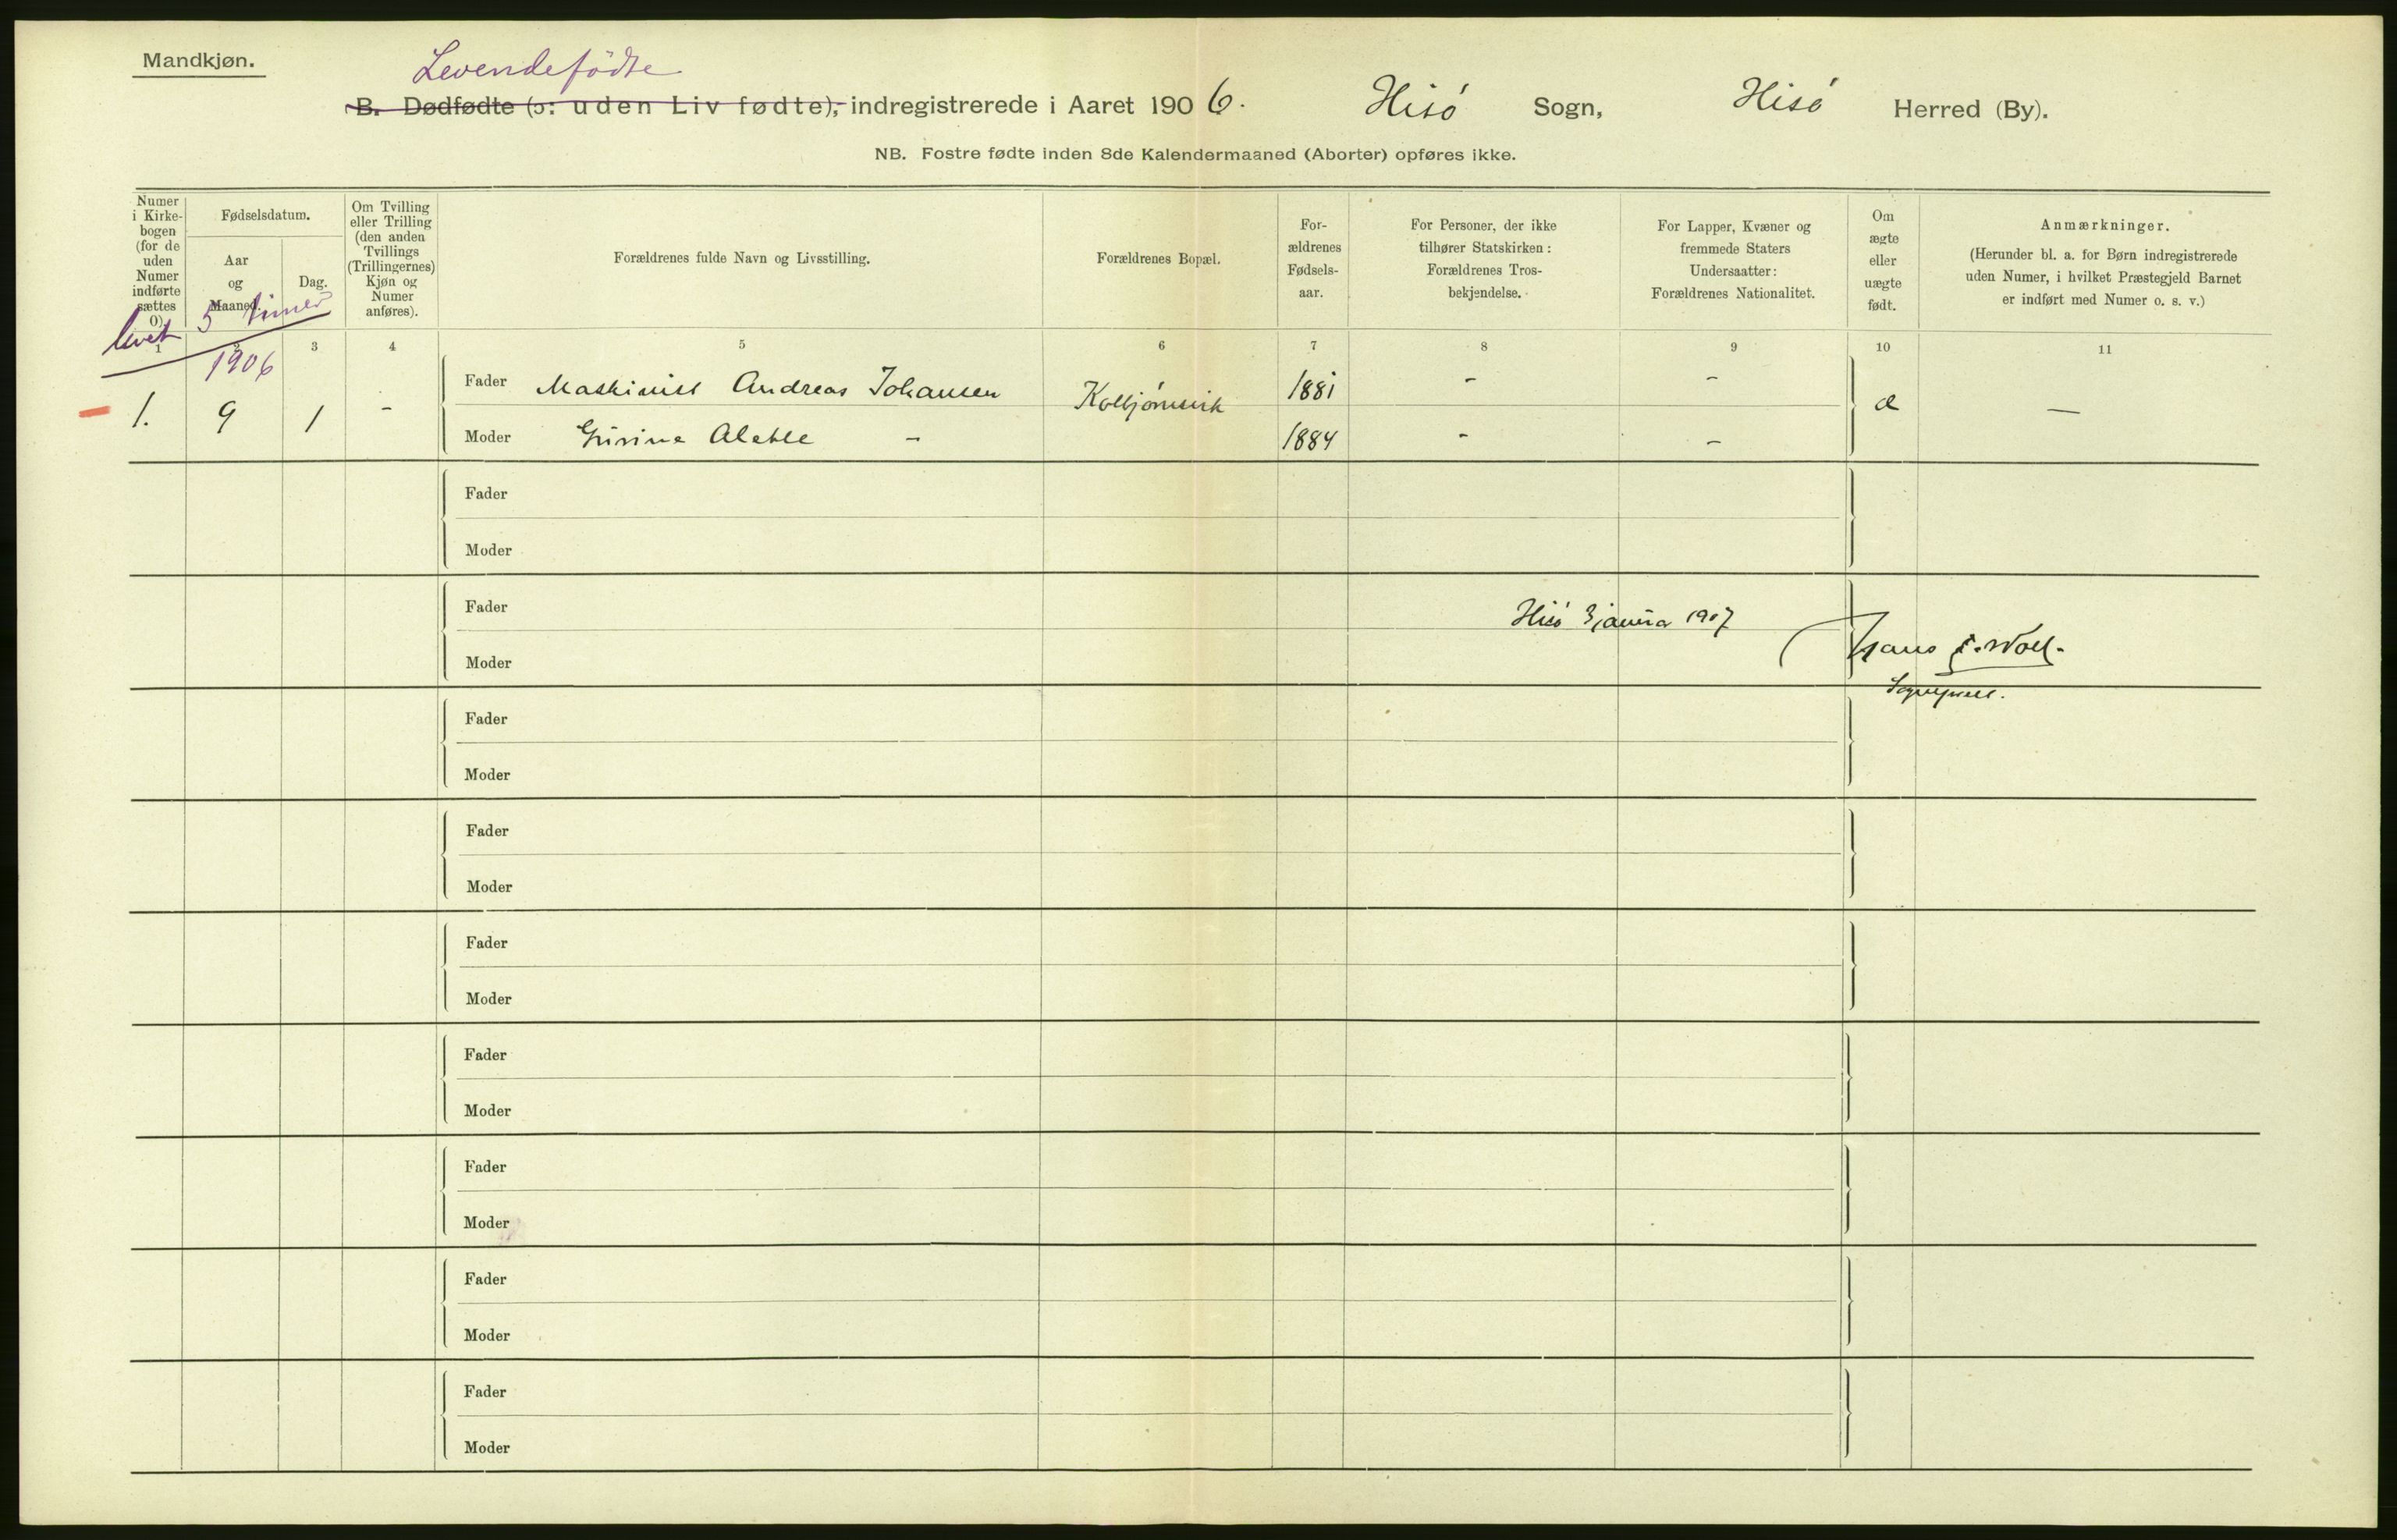 Mandkjøn.
Levendefödte
B. Dødfødte (ɔ: uden Liv fødte), indregistrerede i Aaret 1906. Hisö Sogn, Hisö Herred (By).
NB. Fostre fødte inden 8de Kalendermaaned (Aborter) opføres ikke.
Numer i Kirke-
bogen
(for de
uden
Numer
indførte
sættes
0).
Fødselsdatum.
Aar
og
Maaned.
Dag.
Om Tvilling
eller Trilling
(den anden
Tvillings
(Trillingernes)
Kjøn og
Numer
anføres).
Forældrenes fulde Navn og Livsstilling.
Forældrenes Bopæl.
For-
ældrenes
Fødsels-
aar.
For Personer, der ikke
tilhører Statskirken:
Forældrenes Tros-
bekjendelse.
For Lapper, Kvæner og
fremmede Staters
Undersaatter:
Forældrenes Nationalitet.
Om
ægte
eller
uægte
født.
Anmærkninger.
(Herunder bl. a. for Børn indregistrerede
uden Numer, i hvilket Præstegjeld Barnet
er indført med Numer o. s. v.)
levet 5 timer
1 2 3 4 5 6 7 8 9 10 11
1906
1. 9 1 - Fader Maskinist Andreas Johansen Kolbjørnsvik 1881 - - æ —
Moder Alette - 1884 - -
Fader
Moder
Fader
Hisö 3 januar 1907
Moder
Hans
Sognepræst.
Fader
Moder
Fader
Moder
Fader
Moder
Fader
Moder
Fader
Moder
Fader
Moder
Fader
Moder